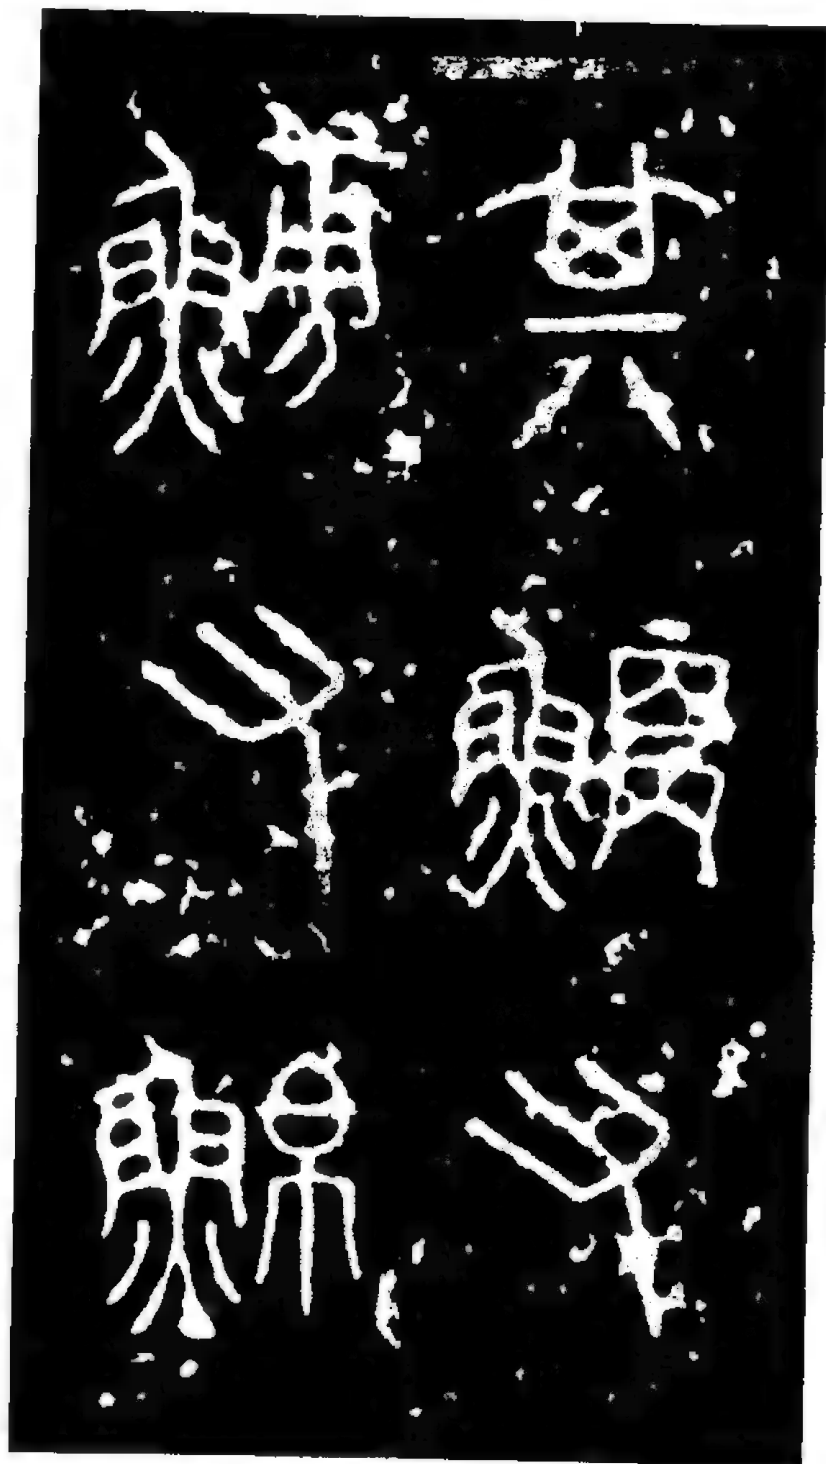 其鯾又
鰟又鮊